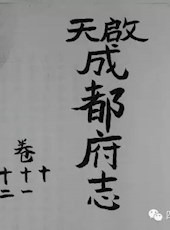 天啟
成都府志
卷
十
十一
十二